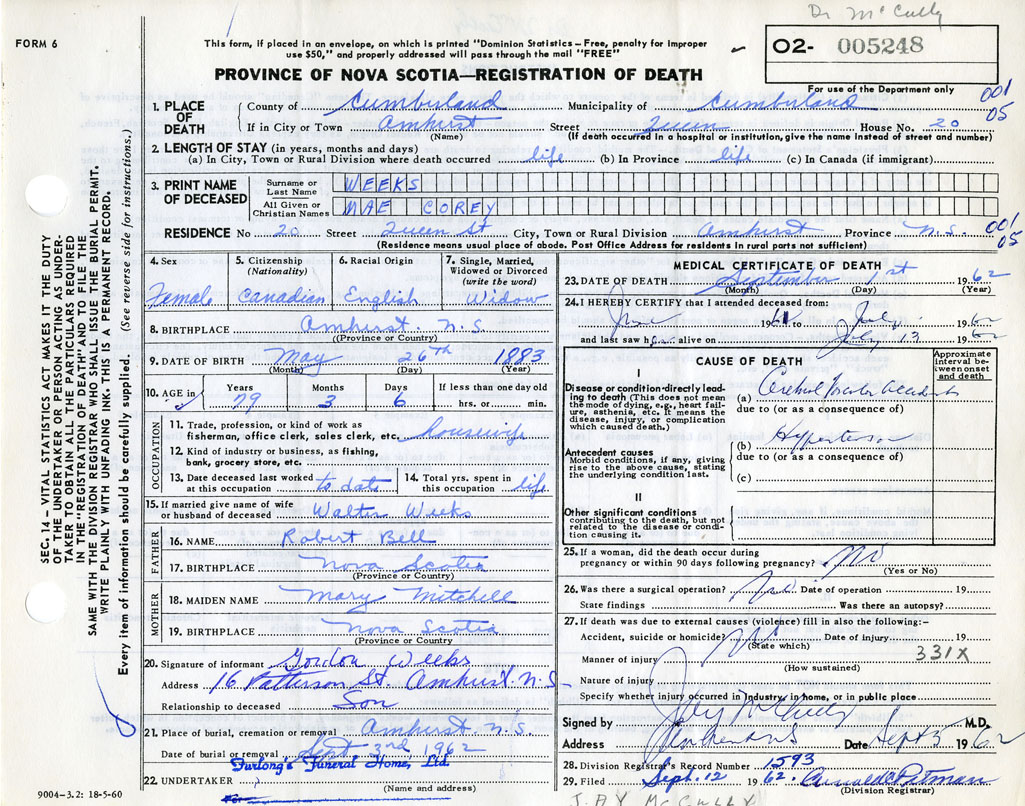 Dr McCully
FORM 6
This form, if placed in an envelope, on which is printed "Dominion Statistics – Free, penalty for improper
use $50," and properly addressed will pass through the mail "FREE"
O2- 005248
PROVINCE OF NOVA SCOTIA—REGISTRATION OF DEATH
For use of the Department only
001
05
1. PLACE OF DEATH
County of Cumberland Municipality of Cumberland
If in City or Town Amhurst Street Queen House No. 20
(Name) (If death occurred in a hospital or institution, give the name instead of street and number)
2. LENGTH OF STAY (in years, months and days)
(a) In City, Town or Rural Division where death occurred life (b) In Province life (c) In Canada (if immigrant)
3. PRINT NAME OF DECEASED
Surname or Last Name WEEKS
All Given or Christian Names MAE COREY
RESIDENCE No 20 Street Queen St City, Town or Rural Division Amhurst Province N.S.
001
05
(Residence means usual place of abode. Post Office Address for residents in rural parts not sufficient)
SEC. 14 – VITAL STATISTICS ACT MAKES IT THE DUTY
OF THE UNDERTAKER OR PERSON ACTING AS UNDER-
TAKER TO OBTAIN ALL THE PARTICULARS REQUIRED
IN THE "REGISTRATION OF DEATH" AND TO FILE THE
SAME WITH THE DIVISION REGISTRAR WHO SHALL ISSUE THE BURIAL PERMIT.
WRITE PLAINLY WITH UNFADING INK. THIS IS A PERMANENT RECORD.
Every item of information should be carefully supplied. (See reverse side for instructions.)
4. Sex
Female
5. Citizenship
(Nationality)
Canadian
6. Racial Origin
English
7. Single, Married,
Widowed or Divorced
(write the word)
Widow
8. BIRTHPLACE Amhurst N.S.
(Province or Country)
9. DATE OF BIRTH May 26th 1883
(Month) (Day) (Year)
10. AGE in
Years 79
Months 3
Days 6
If less than one day old
hrs. or min.
OCCUPATION
11. Trade, profession, or kind of work as
fisherman, office clerk, sales clerk, etc. housewife
12. Kind of industry or business, as fishing,
bank, grocery store, etc.
13. Date deceased last worked
at this occupation to date
14. Total yrs. spent in
this occupation life
15. If married give name of wife
or husband of deceased Walter Weeks
FATHER
16. NAME Robert Bell
17. BIRTHPLACE Nova Scotia
(Province or Country)
MOTHER
18. MAIDEN NAME Mary Mitchell
19. BIRTHPLACE Nova Scotia
(Province or Country
20. Signature of informant Gordon Weeks
Address 16 Patterson St. Amhurst. N.S
Relationship to deceased Son
21. Place of burial, cremation or removal Amhurst N.S.
Date of burial or removal Sept 3rd 1962
Furlong's Funeral Home, Ltd.
22. UNDERTAKER
(Name and address)
For
9004-3.2: 18-5-60
MEDICAL CERTIFICATE OF DEATH
23. DATE OF DEATH September 1st 1962
(Month) (Day) (Year)
24. I HEREBY CERTIFY that I attended deceased from:
June 1961 to July 1962
and last saw her alive on July 13 1962
CAUSE OF DEATH
Approximate
interval be-
tween onset
and death
I
Disease or condition directly lead-
ing to death (This does not mean
the mode of dying, e.g., heart fail-
ure, asthenia, etc. It means the
disease, injury, or complication
which caused death.)
(a) Cerebral Vascular Accident
due to (or as a consequence of)
Antecedent causes
Morbid conditions, if any, giving
rise to the above cause, stating
the underlying condition last.
(b) Hypertension
due to (or as a consequence of)
(c)
II
Other significant conditions
contributing to the death, but not
related to the disease or condi-
tion causing it.
25. If a woman, did the death occur during
pregnancy or within 90 days following pregnancy? No
(Yes or No)
26. Was there a surgical operation? No Date of operation 19
State findings Was there an autopsy?
27. If death was due to external causes (violence) fill in also the following:-
Accident, suicide or homicide? No Date of injury 19
(State which)
331X
Manner of injury
(How sustained)
Nature of injury
Specify whether injury occurred in industry, in home, or in public place
Signed by Jay McCully M.D.
Address Amherst N S Date Sept 5 1962
28. Division Registrar's Record Number 1593
29. Filed Sept. 12 1962
(Division Registrar)
JAY McCULLY